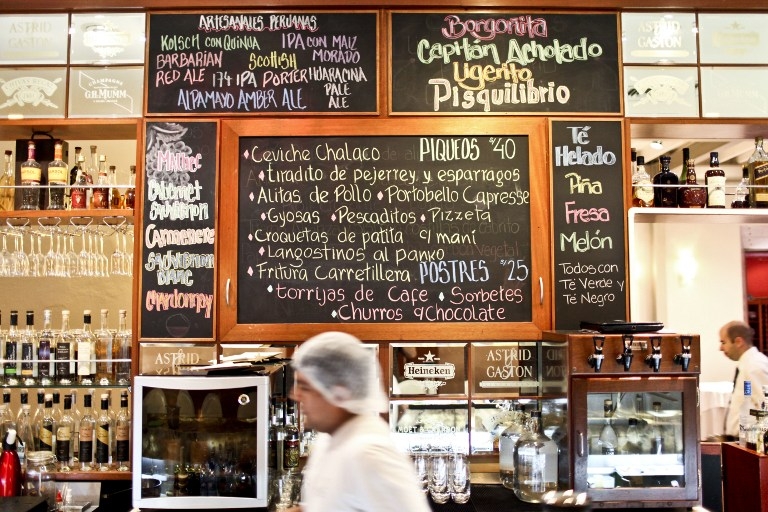 ARTESANALES PERUANAS
KOLSCH CON QUINUA
IPA CON MAIZ MORADO
BARBARIAN RED ALE
SCOTTISH
174 IPA PORTER
HUARACINA PALE ALE
ALPAMAYO AMBER ALE
Borgonita
Capitán Acholado
Ugento
Pisquilibrio
ASTRID
GASTON
G.H.MUMM
ASTRID
GASTON
Malbec
Cabernet
Sauvignon
Carmenere
Sauvignon
Blanc
Chardonnay
Ceviche Chalaco PIQUEOS S/40
tiradito de pejerrey y esparragos
Alitas de Pollo Portobello Capresse
Gyosas Pescaditos Pizzeta
Croquetas de patita c/ maní
Langostinos al panko
Fritura Carretillera POSTRES S/25
torrijas de Cafe Sorbetes
Churros c/Chocolate
Té
Helado
Piña
Fresa
Melón
Todos con
Té Verde y
Té Negro
ASTRID
GASTON
Heineken
ASTRID
GASTON